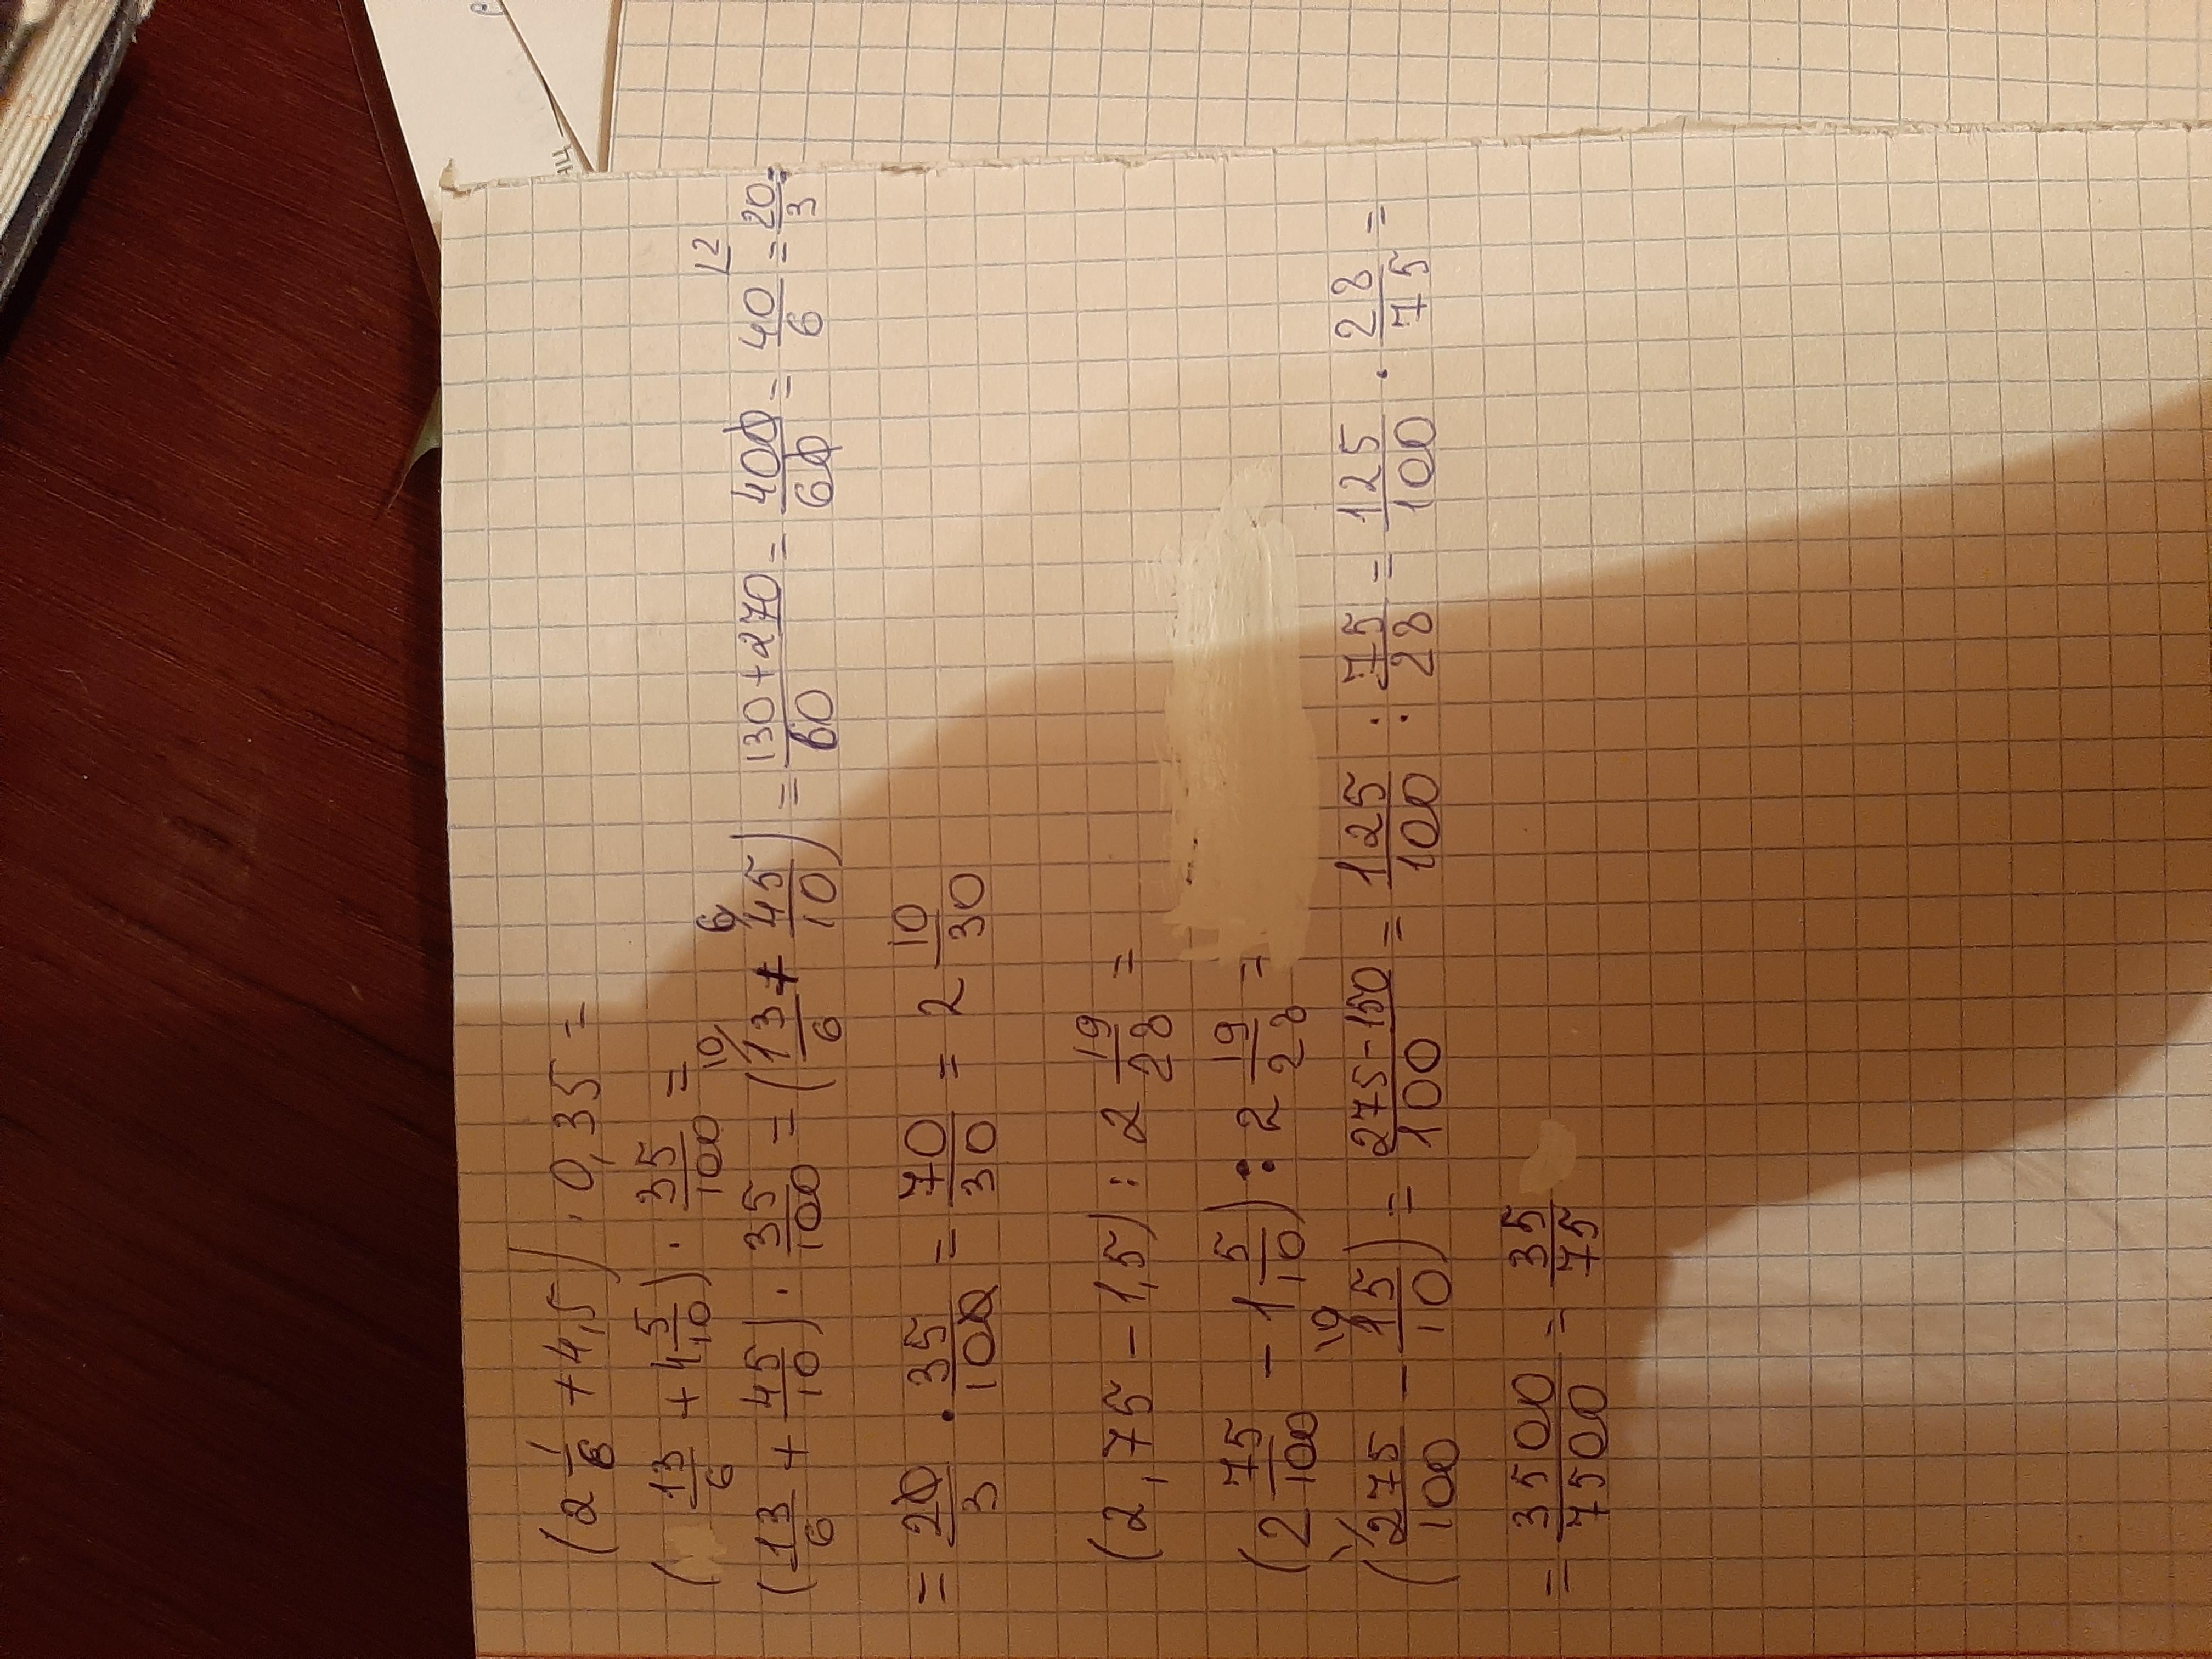 (2 1/6 + 4,5) · 0,35 =
(13/6 + 4 5/10) · 35/100 =
(13/6 + 45/10) · 35/100 = (13/6 10/ + 45/10 6/) = 130+270/60 = 400/60 = 40/6 L2 = 20/3 =
= 20/3 · 35/100 = 70/30 = 2 10/30
(2,75 - 1,5) : 2 19/28 =
(2 75/100 - 1 5/10) : 2 19/28 =
(275/100 1/ - 15/10 10/) = 275-150/100 = 125/100 : 75/28 = 125/100 · 28/75 =
= 3500/7500 = 35/75